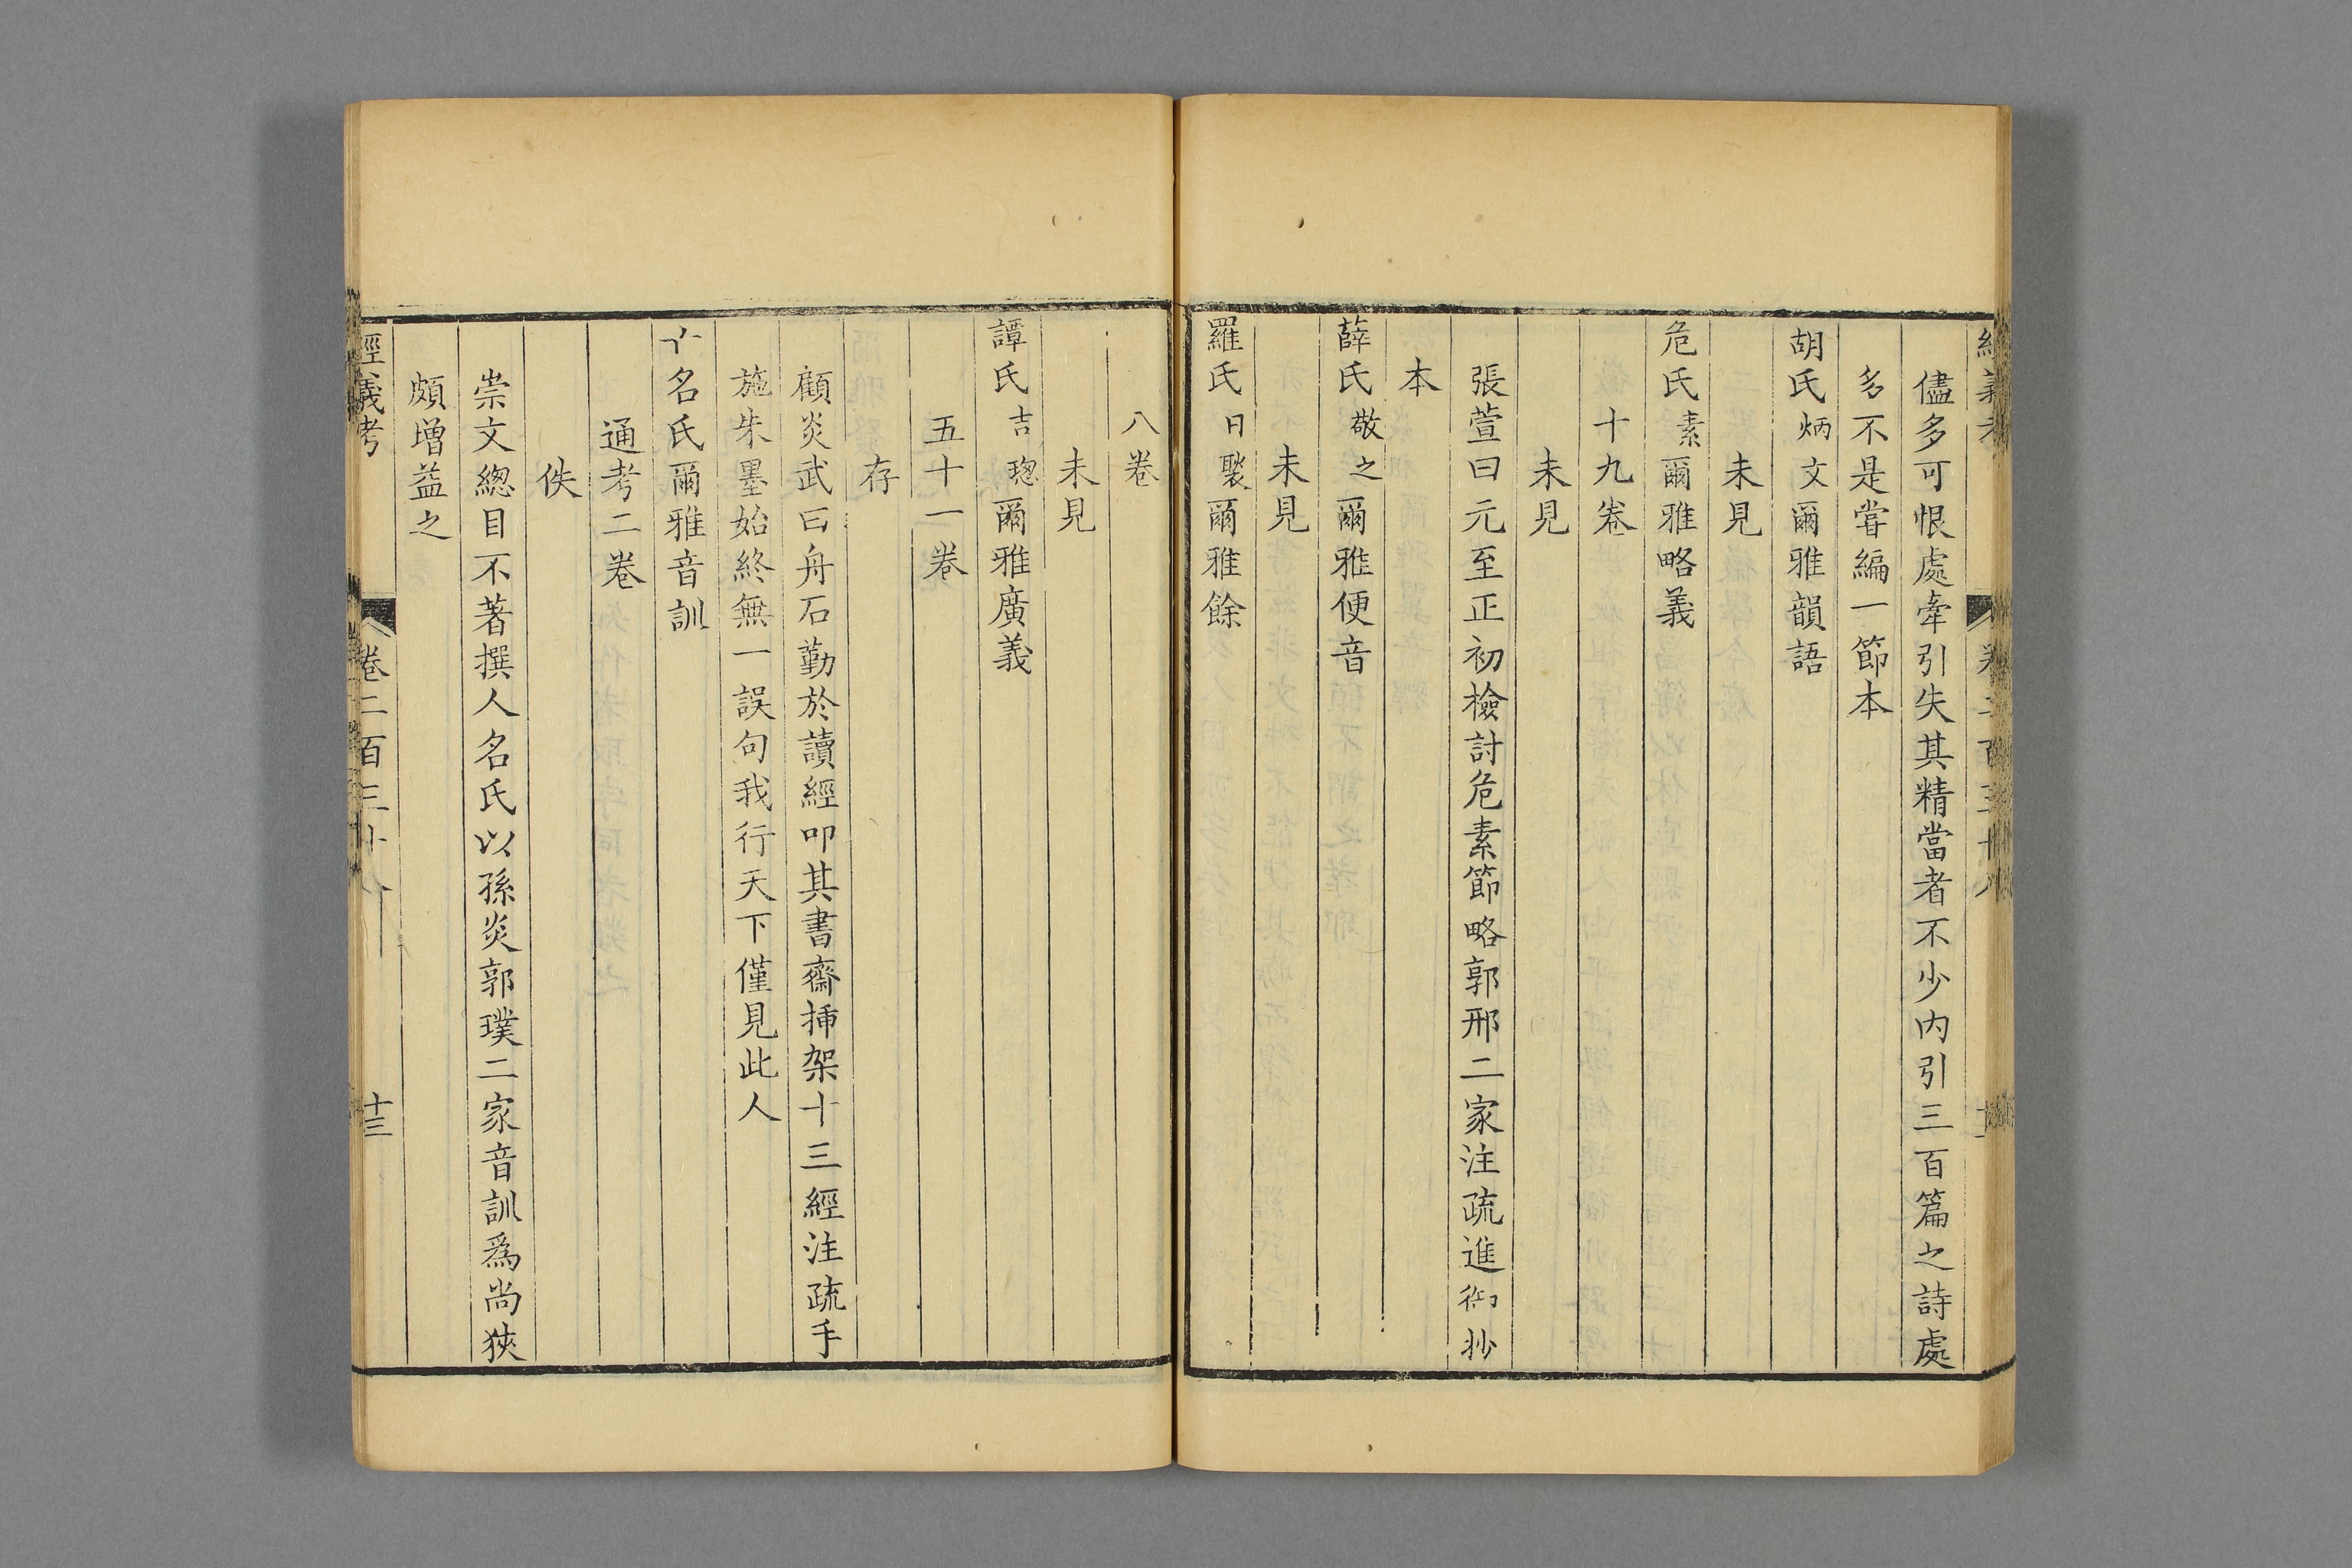 儘多可恨處牽引失其精當者不少内引三百篇之詩處
多不是嘗編一節本
胡氏炳文爾雅韻語
未見
危氏素爾雅略義
十九卷
未見
張萱曰元至正初檢討危素節略郭邢二家注疏進御抄
本
薛氏敬之爾雅便音
未見
羅氏日褧爾雅餘
八卷
未見
譚氏吉璁爾雅廣義
五十一卷
存
顧炎武曰舟石勤於讀經叩其書齋揷架十三經注疏手
施朱墨始終無一誤句我行天下僅見此人
亡名氏爾雅音訓
通考二卷
佚
崇文總目不著撰人名氏以孫炎郭璞二家音訓爲尚狹
頗增益之
經義考
卷二百三十八
十三